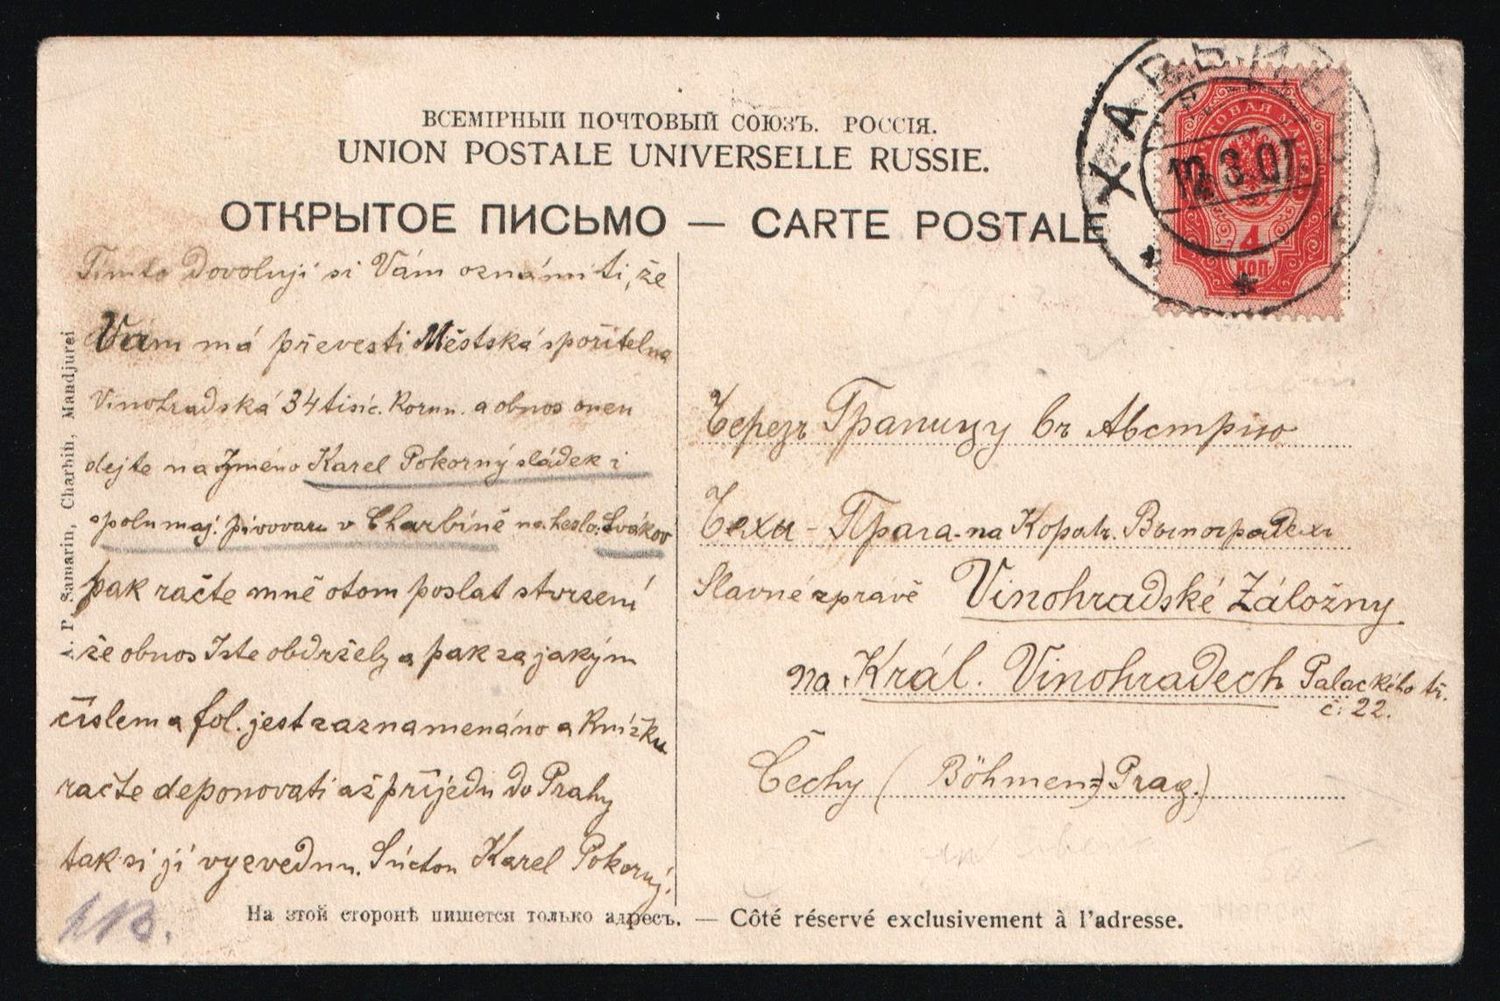 ВСЕМІРНЫЙ ПОЧТОВЫЙ СОЮЗЪ. РОССІЯ.
UNION POSTALE UNIVERSELLE RUSSIE.
ОТКРЫТОЕ ПИСЬМО — CARTE POSTALE
ХАРБИНЪ
12.3.07
МАРКА
4
КОП.
Tímto dovoluji si Vám oznámiti, že
Vám má převesti Městská spořitelna
Vinohradská 34 tisíc. Korun. a obnos onen
dejte na Jméno Karel Pokorný sládek i
spolumaj. pivovaru v Charbíně na heslo: Svákov
pak račte mně otom poslat stvrzení
že obnos Jste obdržely a pak za jakým
číslem a fol. jest zaznamenáno a Knížku
račte deponovati až příjedu do Prahy
tak si ji vyzvednu. Súctou Karel Pokorný.
A. P. Samarin, Charbin, Mandjurei
Черезъ Границу въ Австрію
Чехи - Прага - на Корол. Виноградехъ
Slavné zprávě Vinohradské Záložny
na Král. Vinohradech Palackého tř.
č: 22.
Čechy ( Böhmen) Prag.)
На этой сторонѣ пишется только адресъ. — Côté réservé exclusivement à l'adresse.